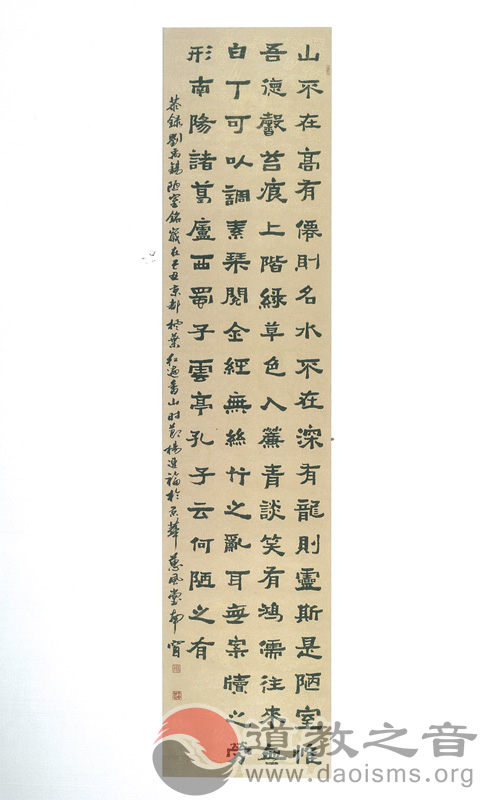 山不在高有僊則名水不在深有龍則靈斯是陋室惟
吾德馨苔痕上階綠草色入簾青談笑有鴻儒往來無
白丁可以調素琴閱金經無絲竹之亂耳無案牘之勞
形南陽諸葛廬西蜀子雲亭孔子云何陋之有
恭錄劉禹錫陋室銘歲在己丑京都葉紅遍香山时節楊進福於京華蕙風堂南窗
道教之音
www.daoisms.org